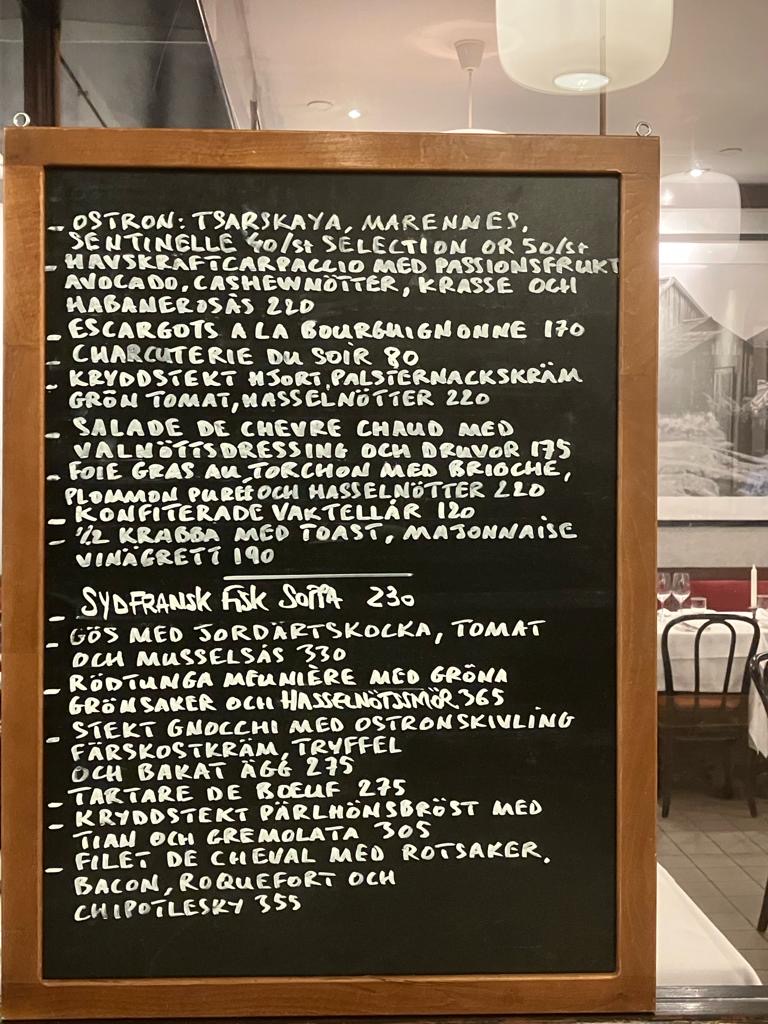 - OSTRON: TSARSKAYA, MARENNES,
SENTINELLE 40/st SELECTION OR 50/st
- HAVSKRÄFTCARPACCIO MED PASSIONSFRUKT
AVOCADO, CASHEWNÖTTER, KRASSE OCH
HABANEROSÅS 220
- ESCARGOTS A LA BOURGUIGNONNE 170
- CHARCUTERIE DU SOIR 80
- KRYDDSTEKT HJORT, PALSTERNACKSKRÄM
GRÖN TOMAT, HASSELNÖTTER 220
- SALADE DE CHEVRE CHAUD MED
VALNÖTTSDRESSING OCH DRUVOR 175
- FOIE GRAS AU TORCHON MED BRIOCHE,
PLOMMON PUREÉ OCH HASSELNÖTTER 220
- KONFITERADE VAKTELLÅR 120
- 1/2 KRABBA MED TOAST, MAJONNAISE
VINÄGRETT 190
- SYDFRANSK FISK SOPPA 230
- GÖS MED JORDÄRTSKOCKA, TOMAT
OCH MUSSELSÅS 330
- RÖDTUNGA MEUNIÈRE MED GRÖNA
GRÖNSAKER OCH HASSELNÖTSSMÖR 365
- STEKT GNOCCHI MED OSTRONSKIVLING
FÄRSKOSTKRÄM, TRYFFEL
OCH BAKAT ÄGG 275
- TARTARE DE BOEUF 275
- KRYDDSTEKT PÄRLHÖNSBRÖST MED
TIAN OCH GREMOLATA 305
- FILET DE CHEVAL MED ROTSAKER,
BACON, ROQUEFORT OCH
CHIPOTLESKY 355